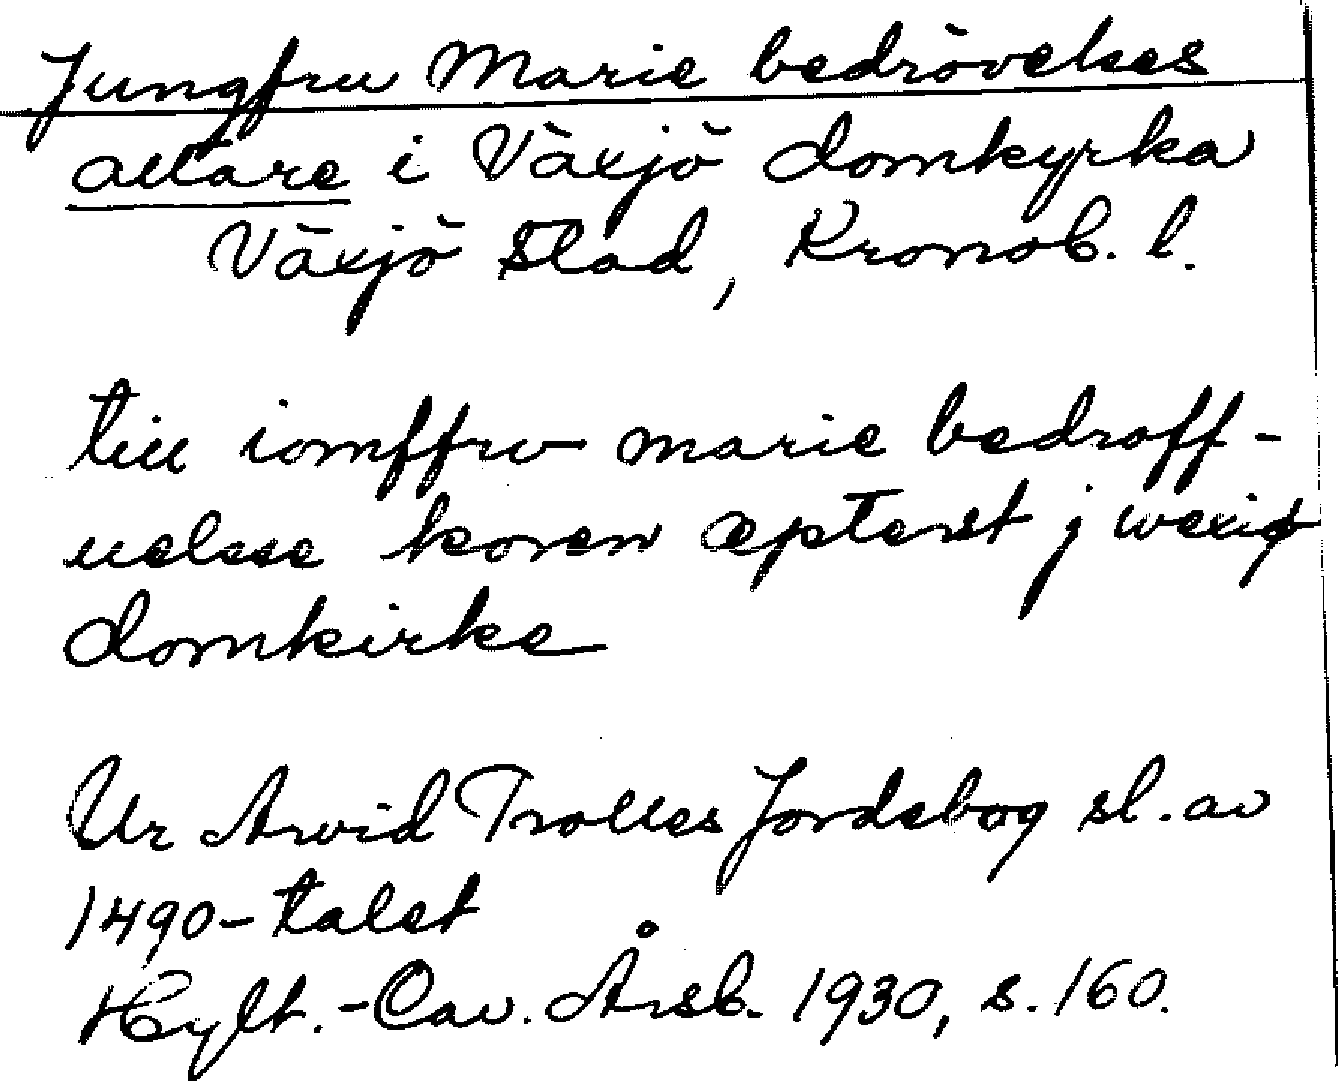 Jungfru Marie bedrövelses
altare i Växjö domkyrka
Växjö stad, Kronob. l.
till iomffrw marie bedroff-
uelsse koren æpterst j wexiø
domkirke
Ur Arvid Trolles Jordebog sl. av
1490-talet
Hylt.-Cav. Årsb. 1930, s. 160.